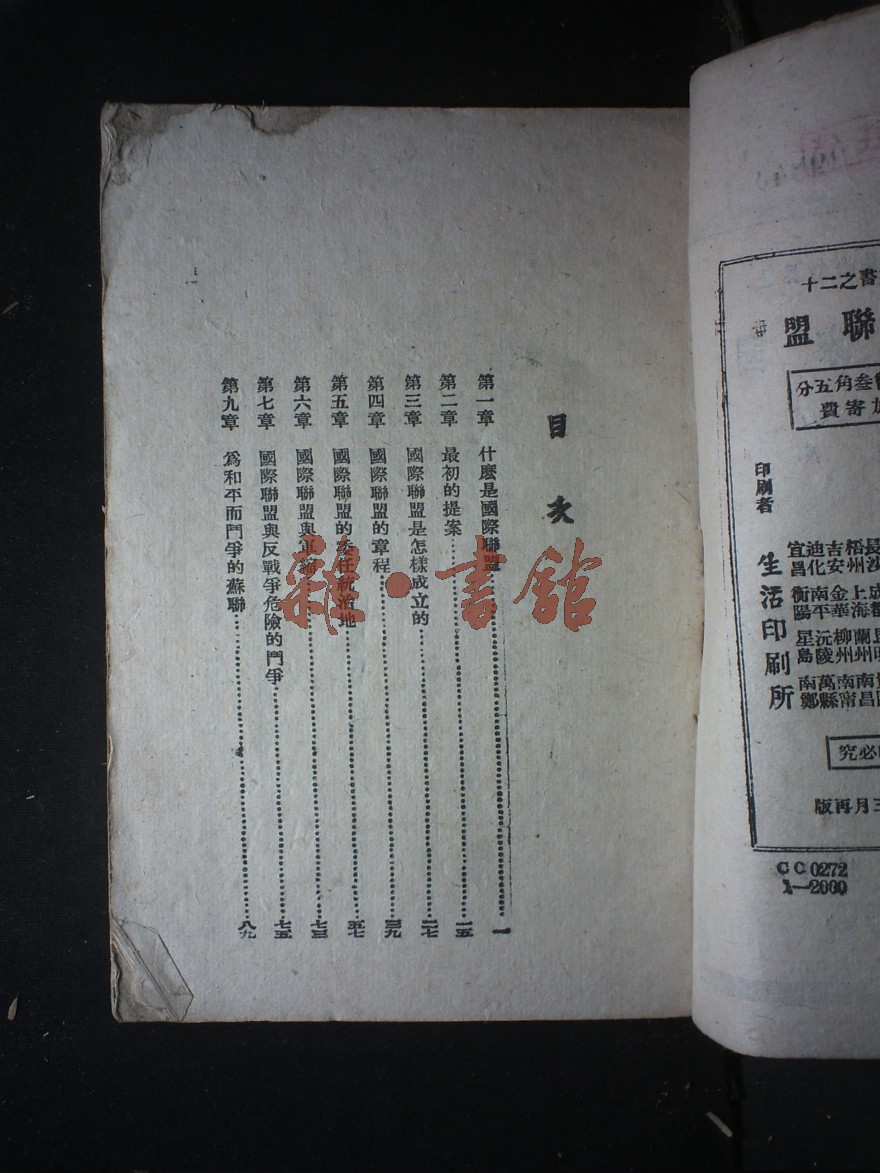 目次
第一章 什麽是國際聯盟 一
第二章 最初的提案 一五
第三章 國際聯盟是怎樣成立的 二七
第四章 國際聯盟的章程 三九
第五章 國際聯盟的委任統治地 五七
第六章 國際聯盟與軍縮 七三
第七章 國際聯盟與反戰爭危險的鬥爭 七五
第九章 爲和平而鬥爭的蘇聯 八九
雜·書館
書之二十
聯盟
叁角五分
加寄費
印刷者 生活印刷所
長沙 梧州 吉安 迪化 宜昌
成都 上海 金華 南平 衡陽
昆明 蘭州 柳州 沅陵 星島
南昌 南甯 萬縣 南鄭
必究
三月再版
CC0272
1—2000